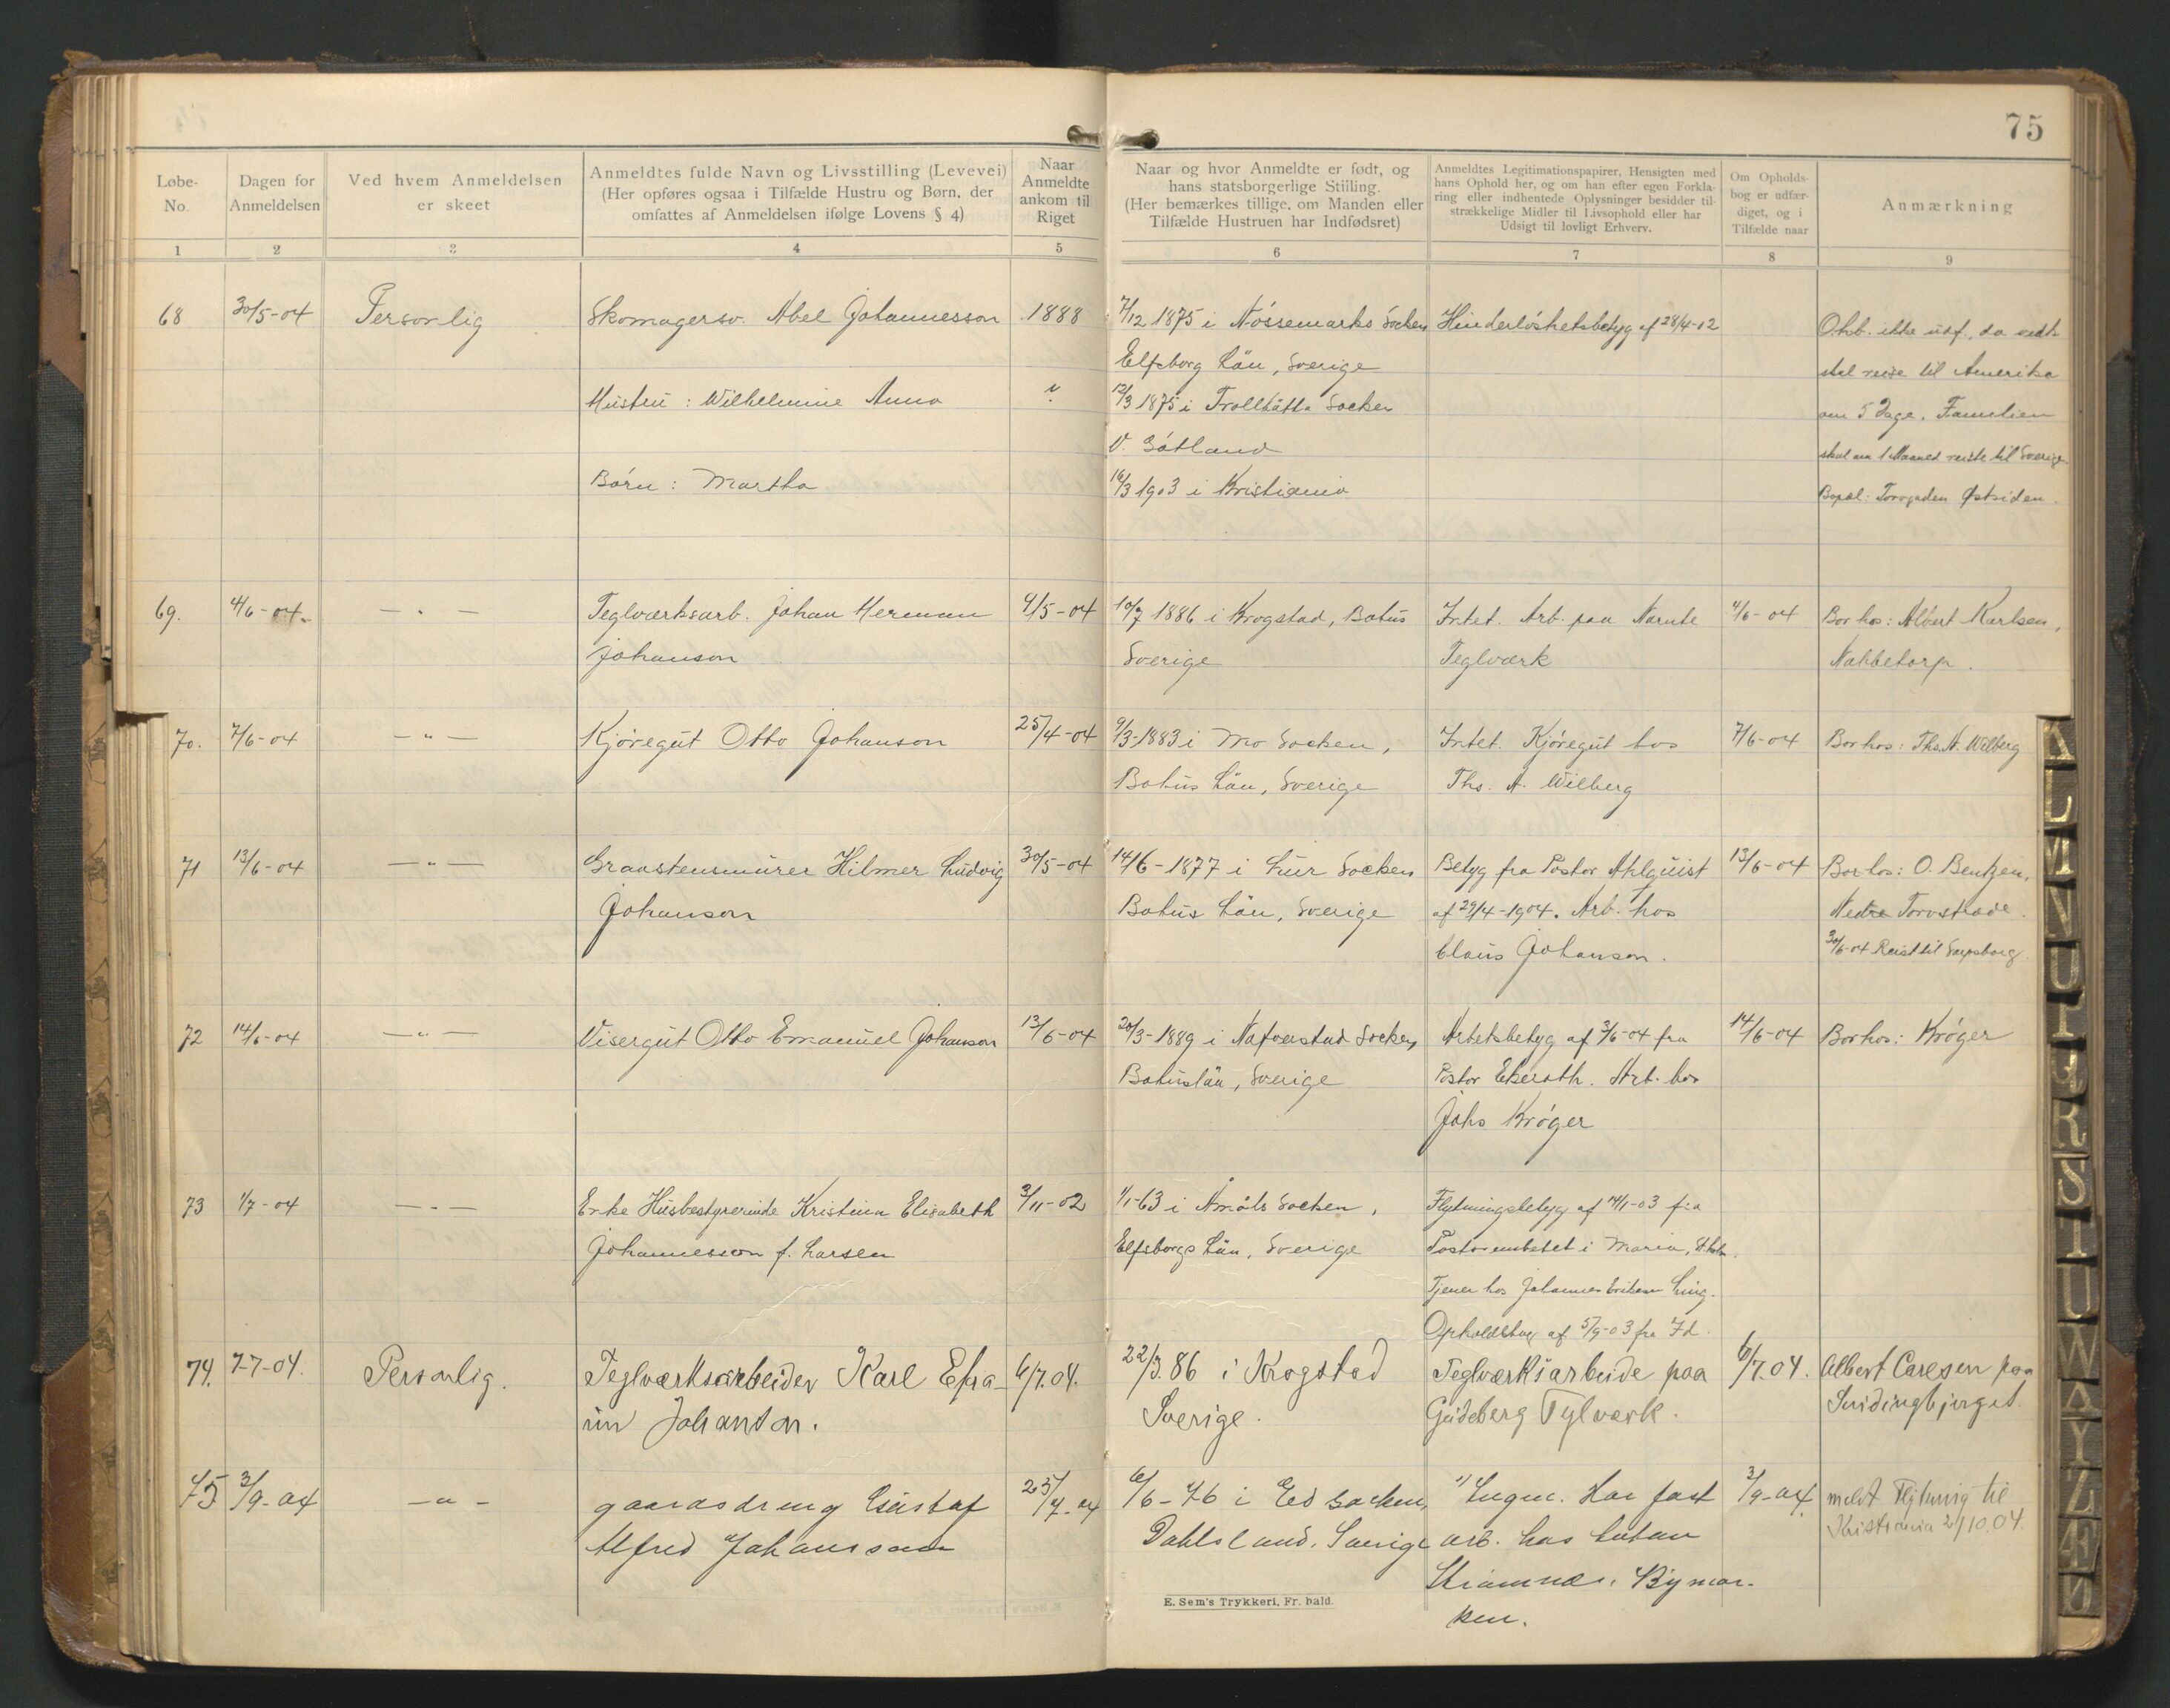 75
Løbe-
No.
Dagen for
Anmeldelsen
Ved hvem Anmeldelsen
er skeet
Anmeldtes fulde Navn og Livsstilling (Levevei)
(Her opføres ogsaa i Tilfælde Hustru og Børn, der
omfattes af Anmeldelsen ifølge Lovens § 4)
Naar
Anmeldte
ankom til
Riget
Naar og hvor Anmeldte er født, og
hans statsborgerlige Stilling.
(Her bemærkes tillige, om Manden eller
Tilfælde Hustruen har Indfødsret)
Anmeldtes Legitimationspapirer, Hensigten med
hans Ophold her, og om han efter egen Forkla-
ring eller indhentede Oplysninger besidder til-
strækkelige Midler til Livsophold eller har
Udsigt til lovligt Erhverv.
Om Opholds-
bog er udfær-
diget, og i
Tilfælde naar
Anmærkning
1 2 3 4 5 6 7 8 9
68 30/5-04 Personlig Skomagersv. Abel Johannesson 1888 7/12 1875 i Nössemarks Socken Hinderlöshetsbetyg af 28/4-02 Ohb. ikke udf., da vedk.
Elfsborg Län, Sverige skal reise til Amerika
Hustru: Wilhelmine Anna " 13/3 1875 i Trollhätta Socken om 5 Dage. Familien
V. Götland skal om 1 Maaned reise til Sverige
Börn: Martha 16/3 1903 i Kristiania Bopæl: Torvgaden Østsiden.
69. 4/6-04. — " — Teglværksarb. Johan Herman 9/5-04 10/7 1886 i Krogstad, Bohus Intet. Arb. paa Narnte 4/6-04 Bor hos: Albert Karlsen,
Johanson Sverige Teglværk Nabbetorp.
70. 7/6-04 — " — Kjøregut Otto Johanson 25/4-04 9/3-1883 i Mo Socken, Intet. Kjøregut hos 7/6-04 Bor hos: Ths. A. Wilberg
Bohus Län, Sverige Ths. A. Wilberg
71 13/6-04 — " — Graastensmurer Hilmer Ludvig 30/5-04 14/6-1877 i Lur Socken Betyg fra Pastor Ahlquist 13/6-04 Bor hos: O. Bentzen,
Johanson Bohus Län, Sverige af 29/4-1904. Arb. hos Nedre Torvstræde.
Claus Johanson. 30/6-04 Reist til Sarpsborg.
72 14/6-04 — " — Visergut Otto Emanuel Johanson 13/6-04 20/3-1889 i Nafverstad Socken, Arbetsbetyg af 3/6-04 fra 14/6-04 Bor hos: Krøger
Bohuslän, Sverige Pastor Ekeroth. Arb. hos
Johs Krøger
73 1/7-04 — " — Enke Husbestyrerinde Kristina Elisabeth 3/11-02 1/1-63 i Åmåls Socken, Flytningsbetyg af 14/1-03 fra
Johannesson f. Larsen Elfsborgs Län, Sverige Pastorsembetet i Maria, Sthlm.
Tjener hos Johannes Eriksen Ling.
Opholdsbog af 5/9-03 fra Id.
74. 7-7-04. Personlig. Teglværksarbeider Karl Efra- 6/7.04. 22/3.86 i Krogstad Teglværksarbeide paa 6/7.04. Albert Carlsen paa
im Johanson. Sverige. Teglværk.
75 3/9-04 — " — gaardsdreng Gustaf 25/7-04 6/6-76 i Ed socken, Ingen. Har fast 3/9-04. meldt Flytning til
Alfred Johansson Dahlsland. Sverige arb. hos Kristiania 2/10.04.
Bymar-
ken.
E. Sem's Trykkeri, Fr. hald.
K
L
M
N
O
P
R
S
T
U
W
Y
Z
Æ
Ø